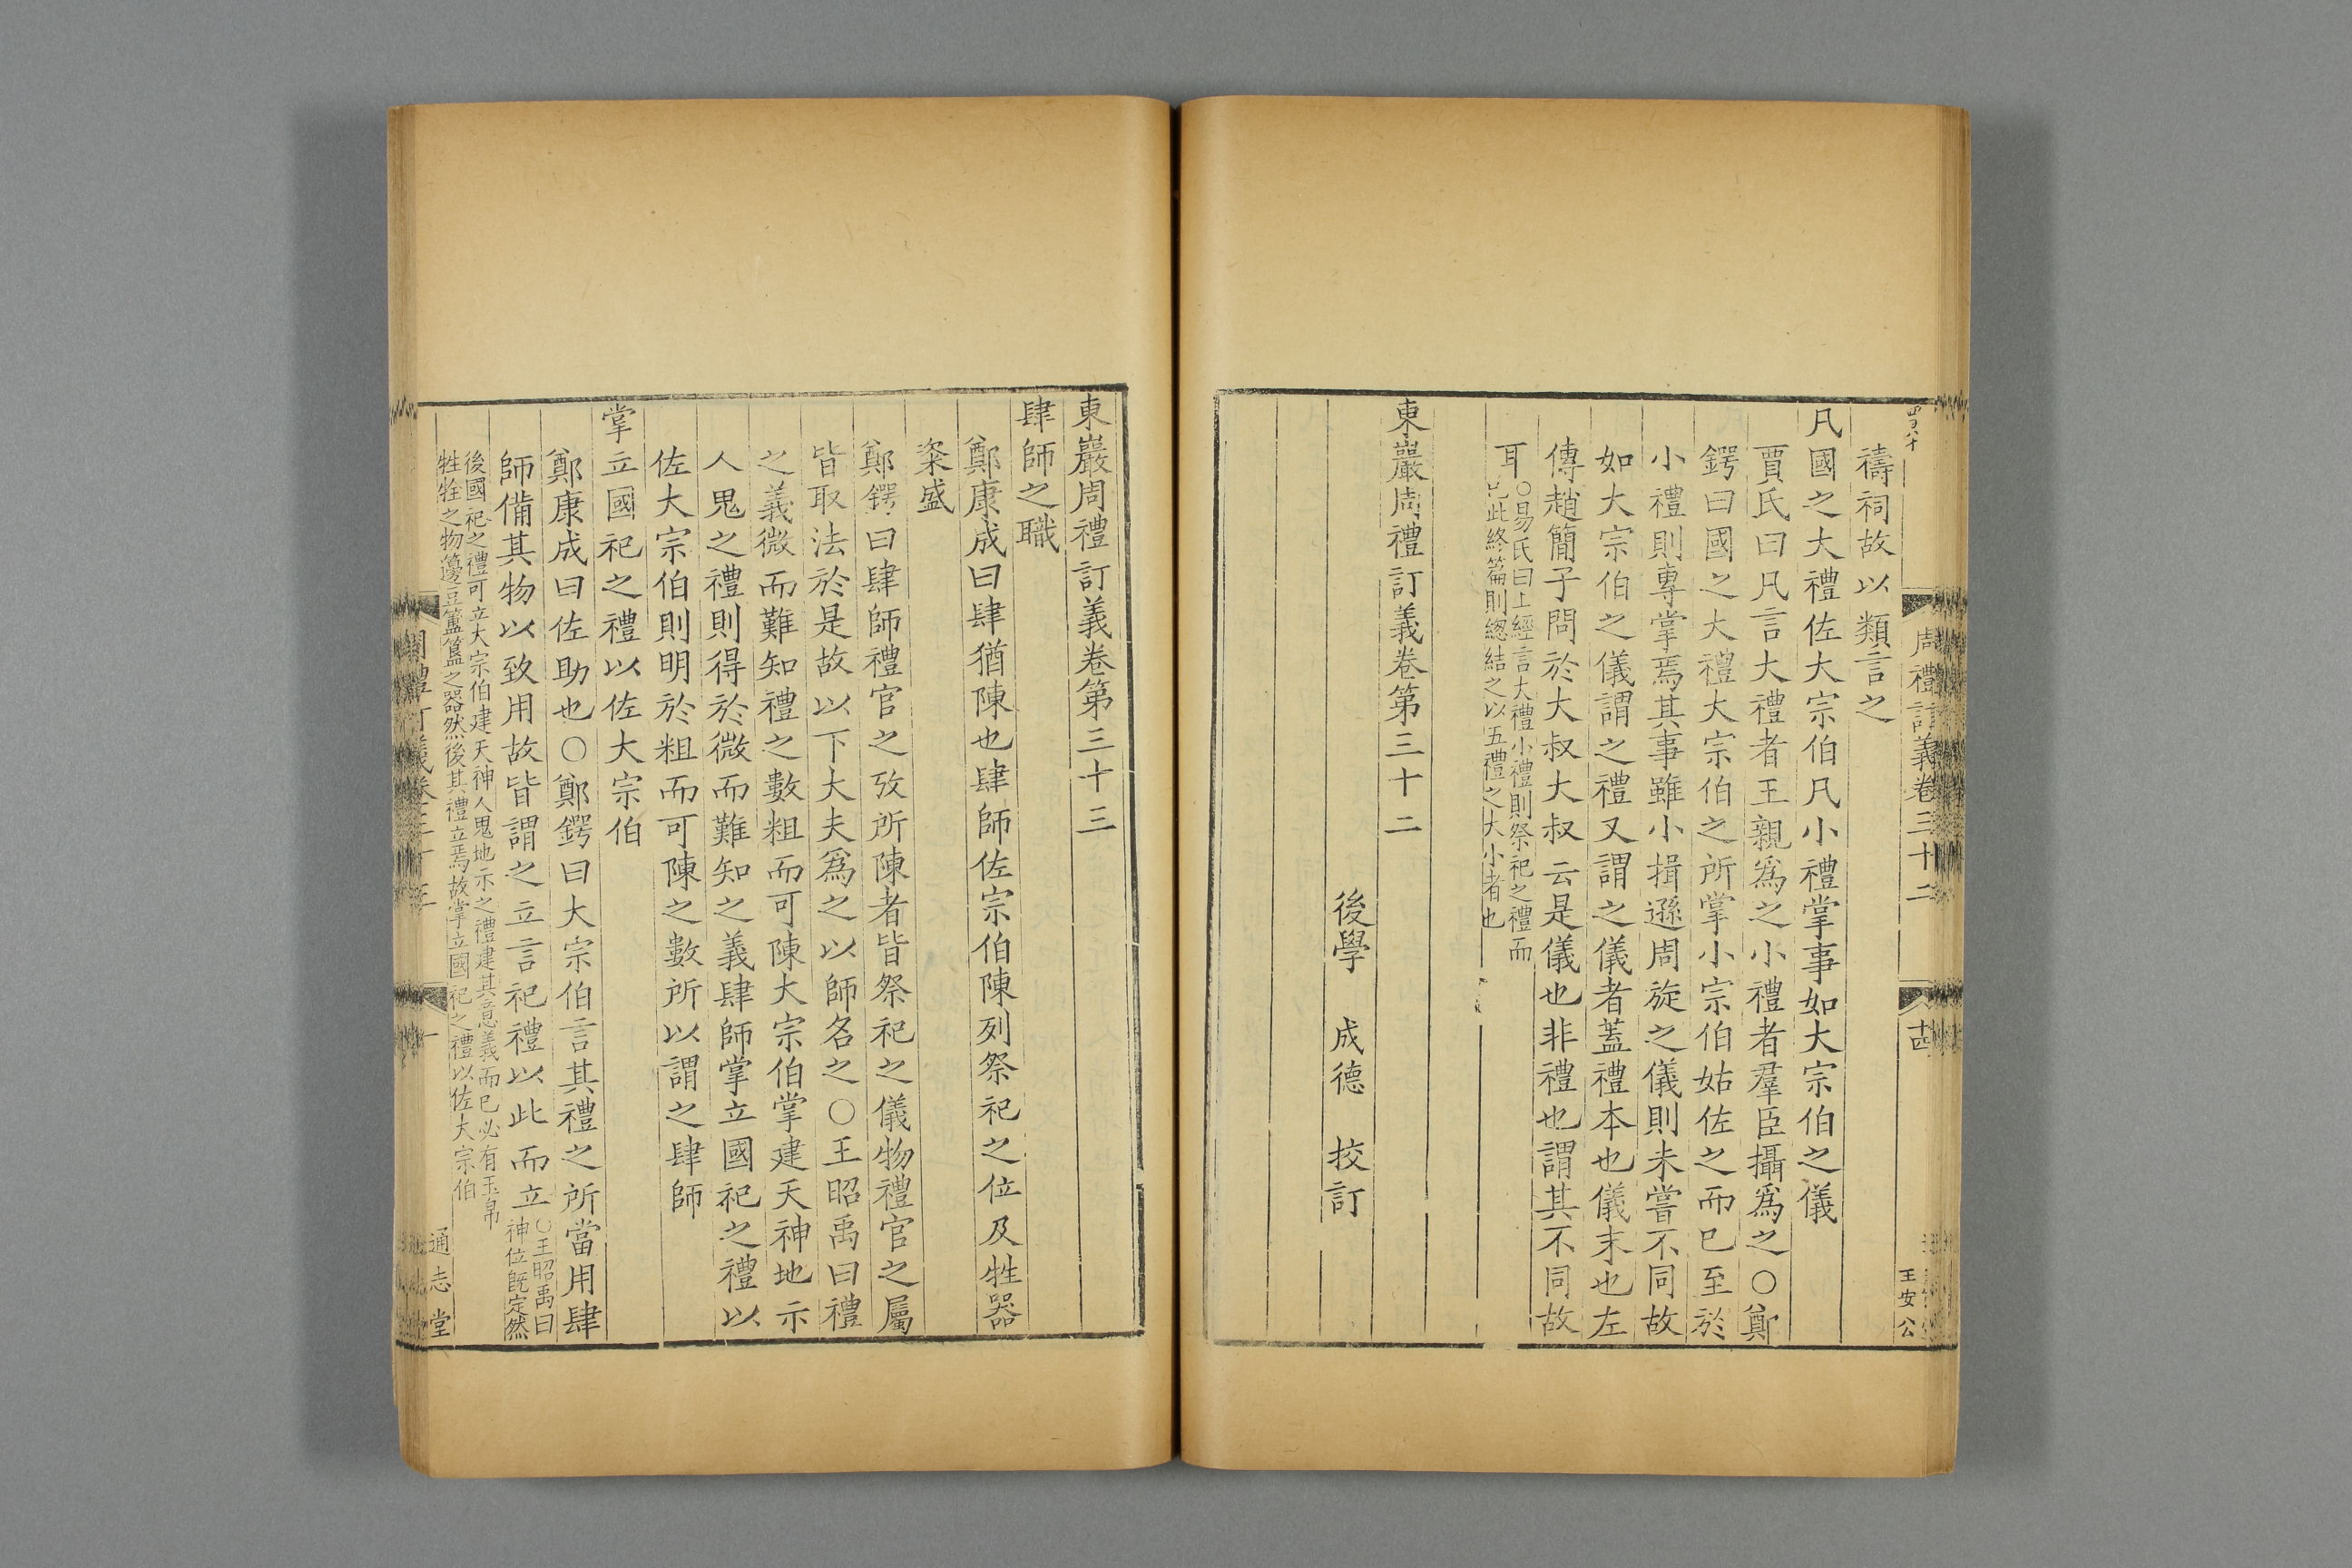 周禮訂義卷三十二
王安公
禱祠故以類言之
凡國之大禮佐大宗伯凡小禮掌事如大宗伯之儀
賈氏曰凡言大禮者王親爲之小禮者羣臣攝爲之○鄭
鍔曰國之大禮大宗伯之所掌小宗伯姑佐之而已至於
小禮則專掌焉其事雖小揖遜周旋之儀則未嘗不同故
如大宗伯之儀謂之禮又謂之儀者蓋禮本也儀末也左
傳趙簡子問於大叔大叔云是儀也非禮也謂其不同故
耳
○易氏曰上經言大禮小禮則祭祀之禮而
此終篇則總結之以五禮之大小者也
東巖周禮訂義卷第三十二
後學 成德 校訂
東巖周禮訂義卷第三十三
肆師之職
鄭康成曰肆猶陳也肆師佐宗伯陳列祭祀之位及牲器
粢盛
鄭鍔曰肆師禮官之攷所陳者皆祭祀之儀物禮官之屬
皆取法於是故以下大夫爲之以師名之○王昭禹曰禮
之義微而難知禮之數粗而可陳大宗伯掌建天神地示
人鬼之禮則得於微而難知之義肆師掌立國祀之禮以
佐大宗伯則明於粗而可陳之數所以謂之肆師
掌立國祀之禮以佐大宗伯
鄭康成曰佐助也○鄭鍔曰大宗伯言其禮之所當用肆
師備其物以致用故皆謂之立言祀禮以此而立
○王昭禹曰
神位旣定然
後國祀之禮可立大宗伯建天神人鬼地示之禮建其意義而已必有玉帛
牲牷之物籩豆簠簋之器然後其禮立焉故掌立國祀之禮以佐大宗伯
通志堂